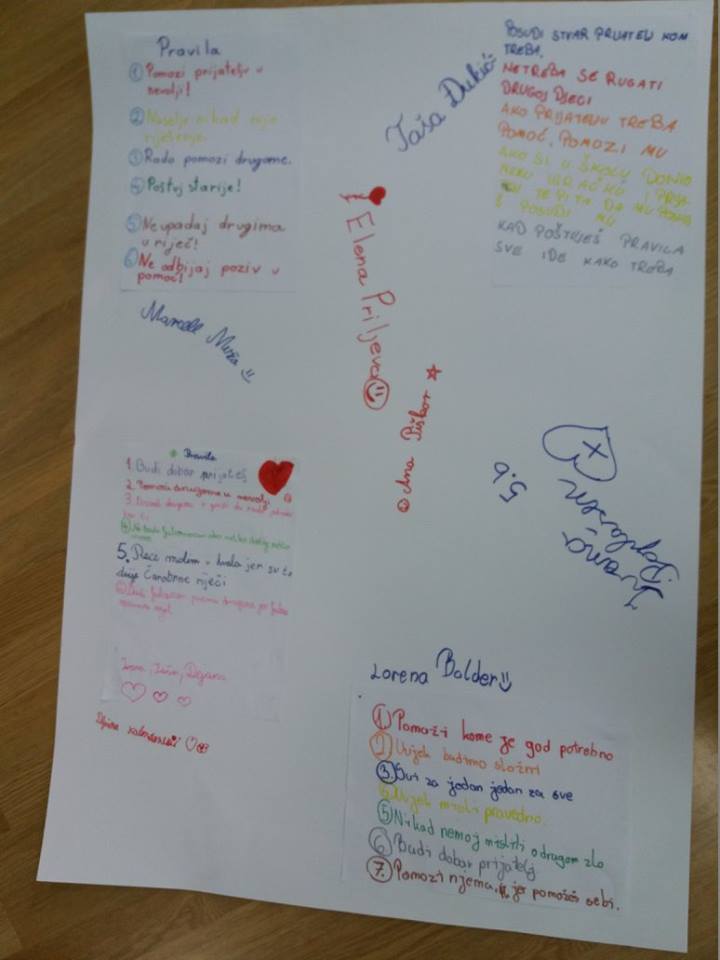 Pravila
1 Pomozi prijatelju u
nevolji!
2 Nasilje nikad nije
rješenje.
3 Rado pomozi drugome.
4 Poštuj starije!
5 Ne upadaj drugima
u riječ!
6 Ne odbijaj poziv u
pomoć!
Taša Đukić
POSUDI STVAR PRIJATELJU KOM
TREBA.
NETREBA SE RUGATI
DRUGOJ DJECI
AKO PRIJATELJU TREBA
POMOĆ, POMOZI MU
AKO SI U ŠKOLU DONIO
NEKU IGRAČKU I
TE PITA DA MU
POSUDI MU
KAD POŠTUJEŠ PRAVILA
SVE IDE KAKO TREBA
Elena Priljeva
Marcela
Ana Piškor
5.b
Ivana
Pravila
1. Budi dobar prijatelj
2. Pomozi drugome u nevolji
3.
4
5. Reci molim i hvala jer su to
dvije čarobne riječi
6
Ivana, Dijana
Lorena Balder
1 Pomozi kome je god potrebno
2 Uvijek budimo složni
3. Svi za jedan jedan za sve
4. Uvijek misli pravedno.
5 Nikad nemoj misliti o drugom zlo
6 Budi dobar prijatelj
7. Pomozi njema, jer pomažeš sebi.